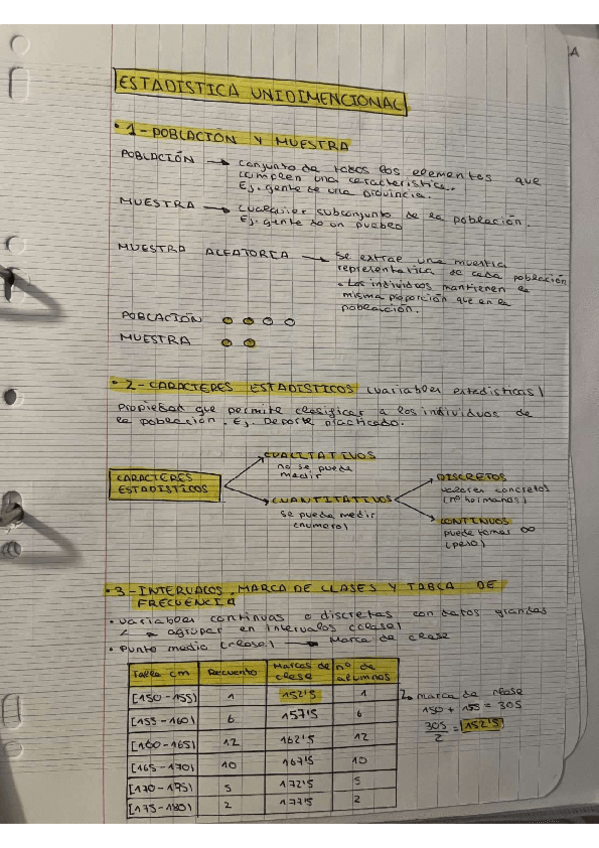 A
ESTADISTICA UNIDIMENCIONAL
• 1 - POBLACIÓN Y MUESTRA
POBLACIÓN → conjunto de todos los elementos que
cumplen una caracteristica.
Ej. gente de una provincia.
MUESTRA → cualquier subconjunto de la población.
Ej. gente de un pueblo
MUESTRA ALEATORIA → se extrae una muestra
representativa de cada población
• Los individuos mantienen la
misma proporción que en la
población.
POBLACIÓN
MUESTRA
• 2 - CARACTERES ESTADISTICOS (variables estadisticas)
Propiedad que permite clasificar a los individuos de
la población. Ej. Deporte practicado.
CARACTERES ESTADISTICOS
CUALITATIVOS
no se puede
medir
CUANTITATIVOS
se puede medir
(numero)
DISCRETOS
valores concretos
(nº hermanos)
CONTINUOS
puede tomar ∞
(peso)
• 3 - INTERVALOS, MARCA DE CLASES Y TABLA DE
FRECUENCIA
• variables continuas o discretas con datos grandes
→ agrupar en intervalos (clase)
• Punto medio (clase) → Marca de clase
Talla cm Recuento Marcas de clase nº de alumnos
[150-155) 1 152'5 1
[155-160) 6 157'5 6
[160-165) 12 162'5 12
[165-170) 10 167'5 10
[170-175) 5 172'5 5
[175-180) 2 177'5 2
→ marca de clase
150 + 155 = 305
305/2 = 152'5